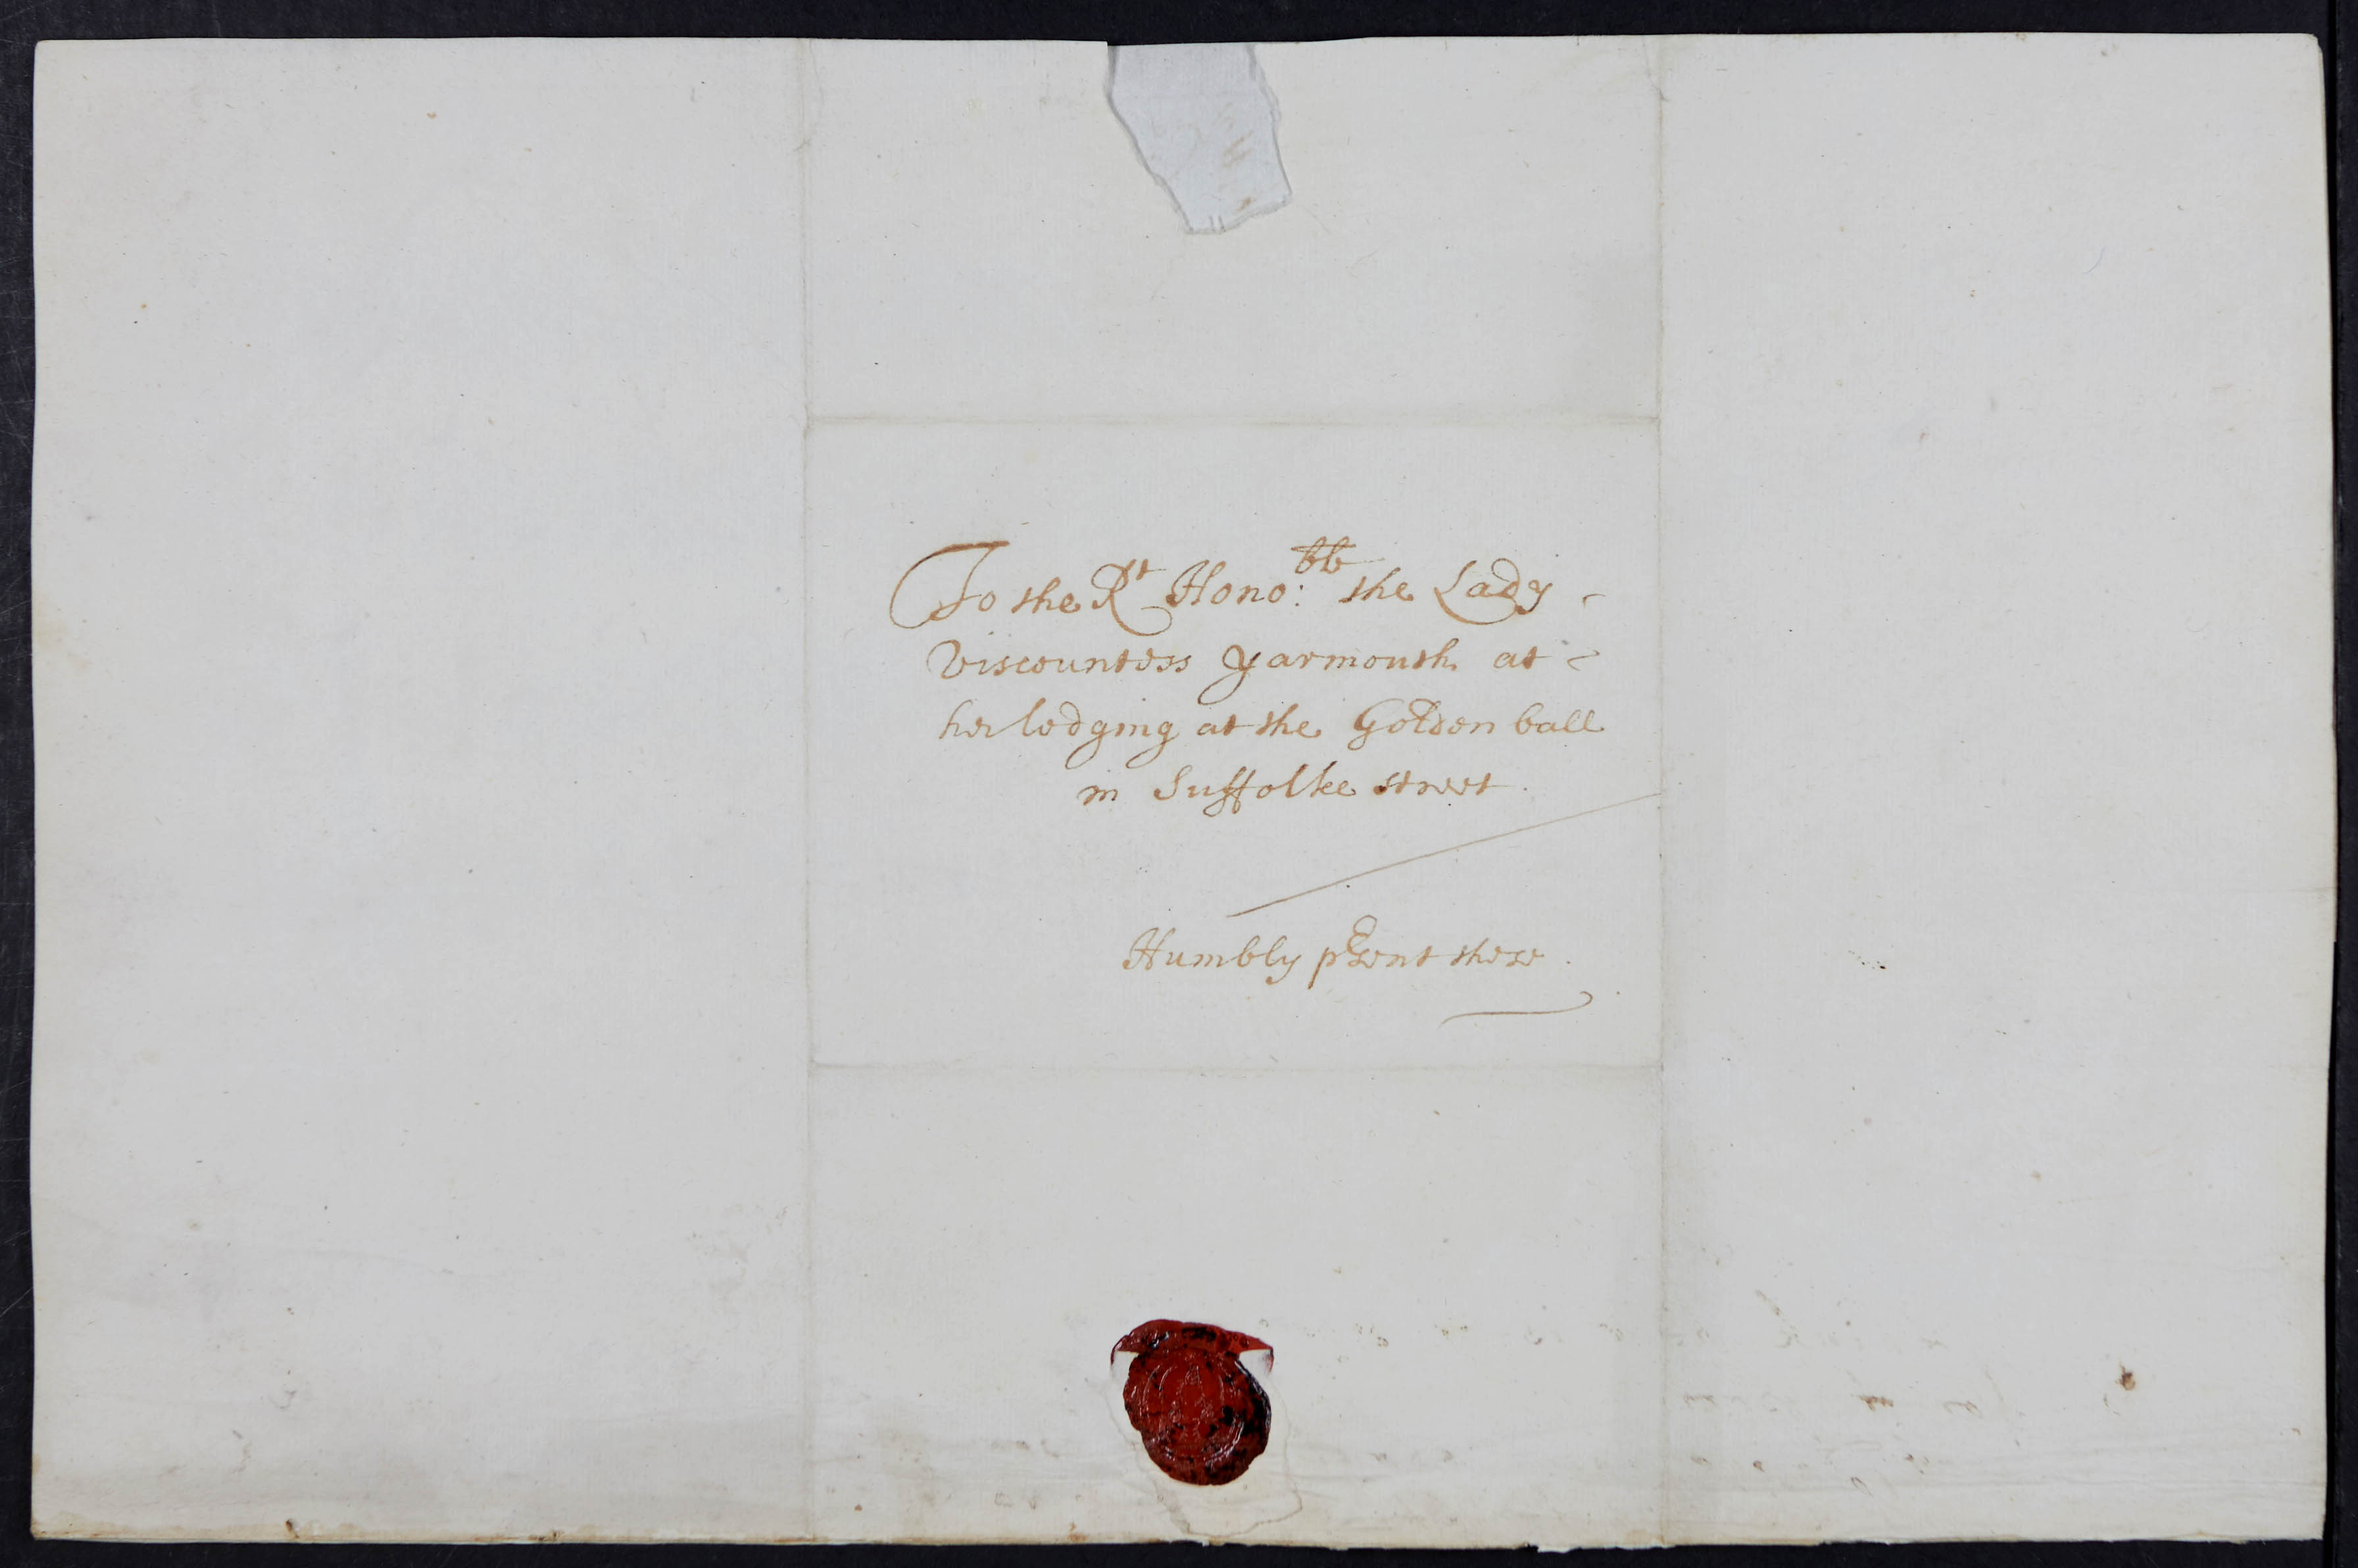 To the Rt Hono:ble the Lady
Viscountess Yarmouth at
her lodging at the Golden ball
in Suffolke street.
Humbly psent these.